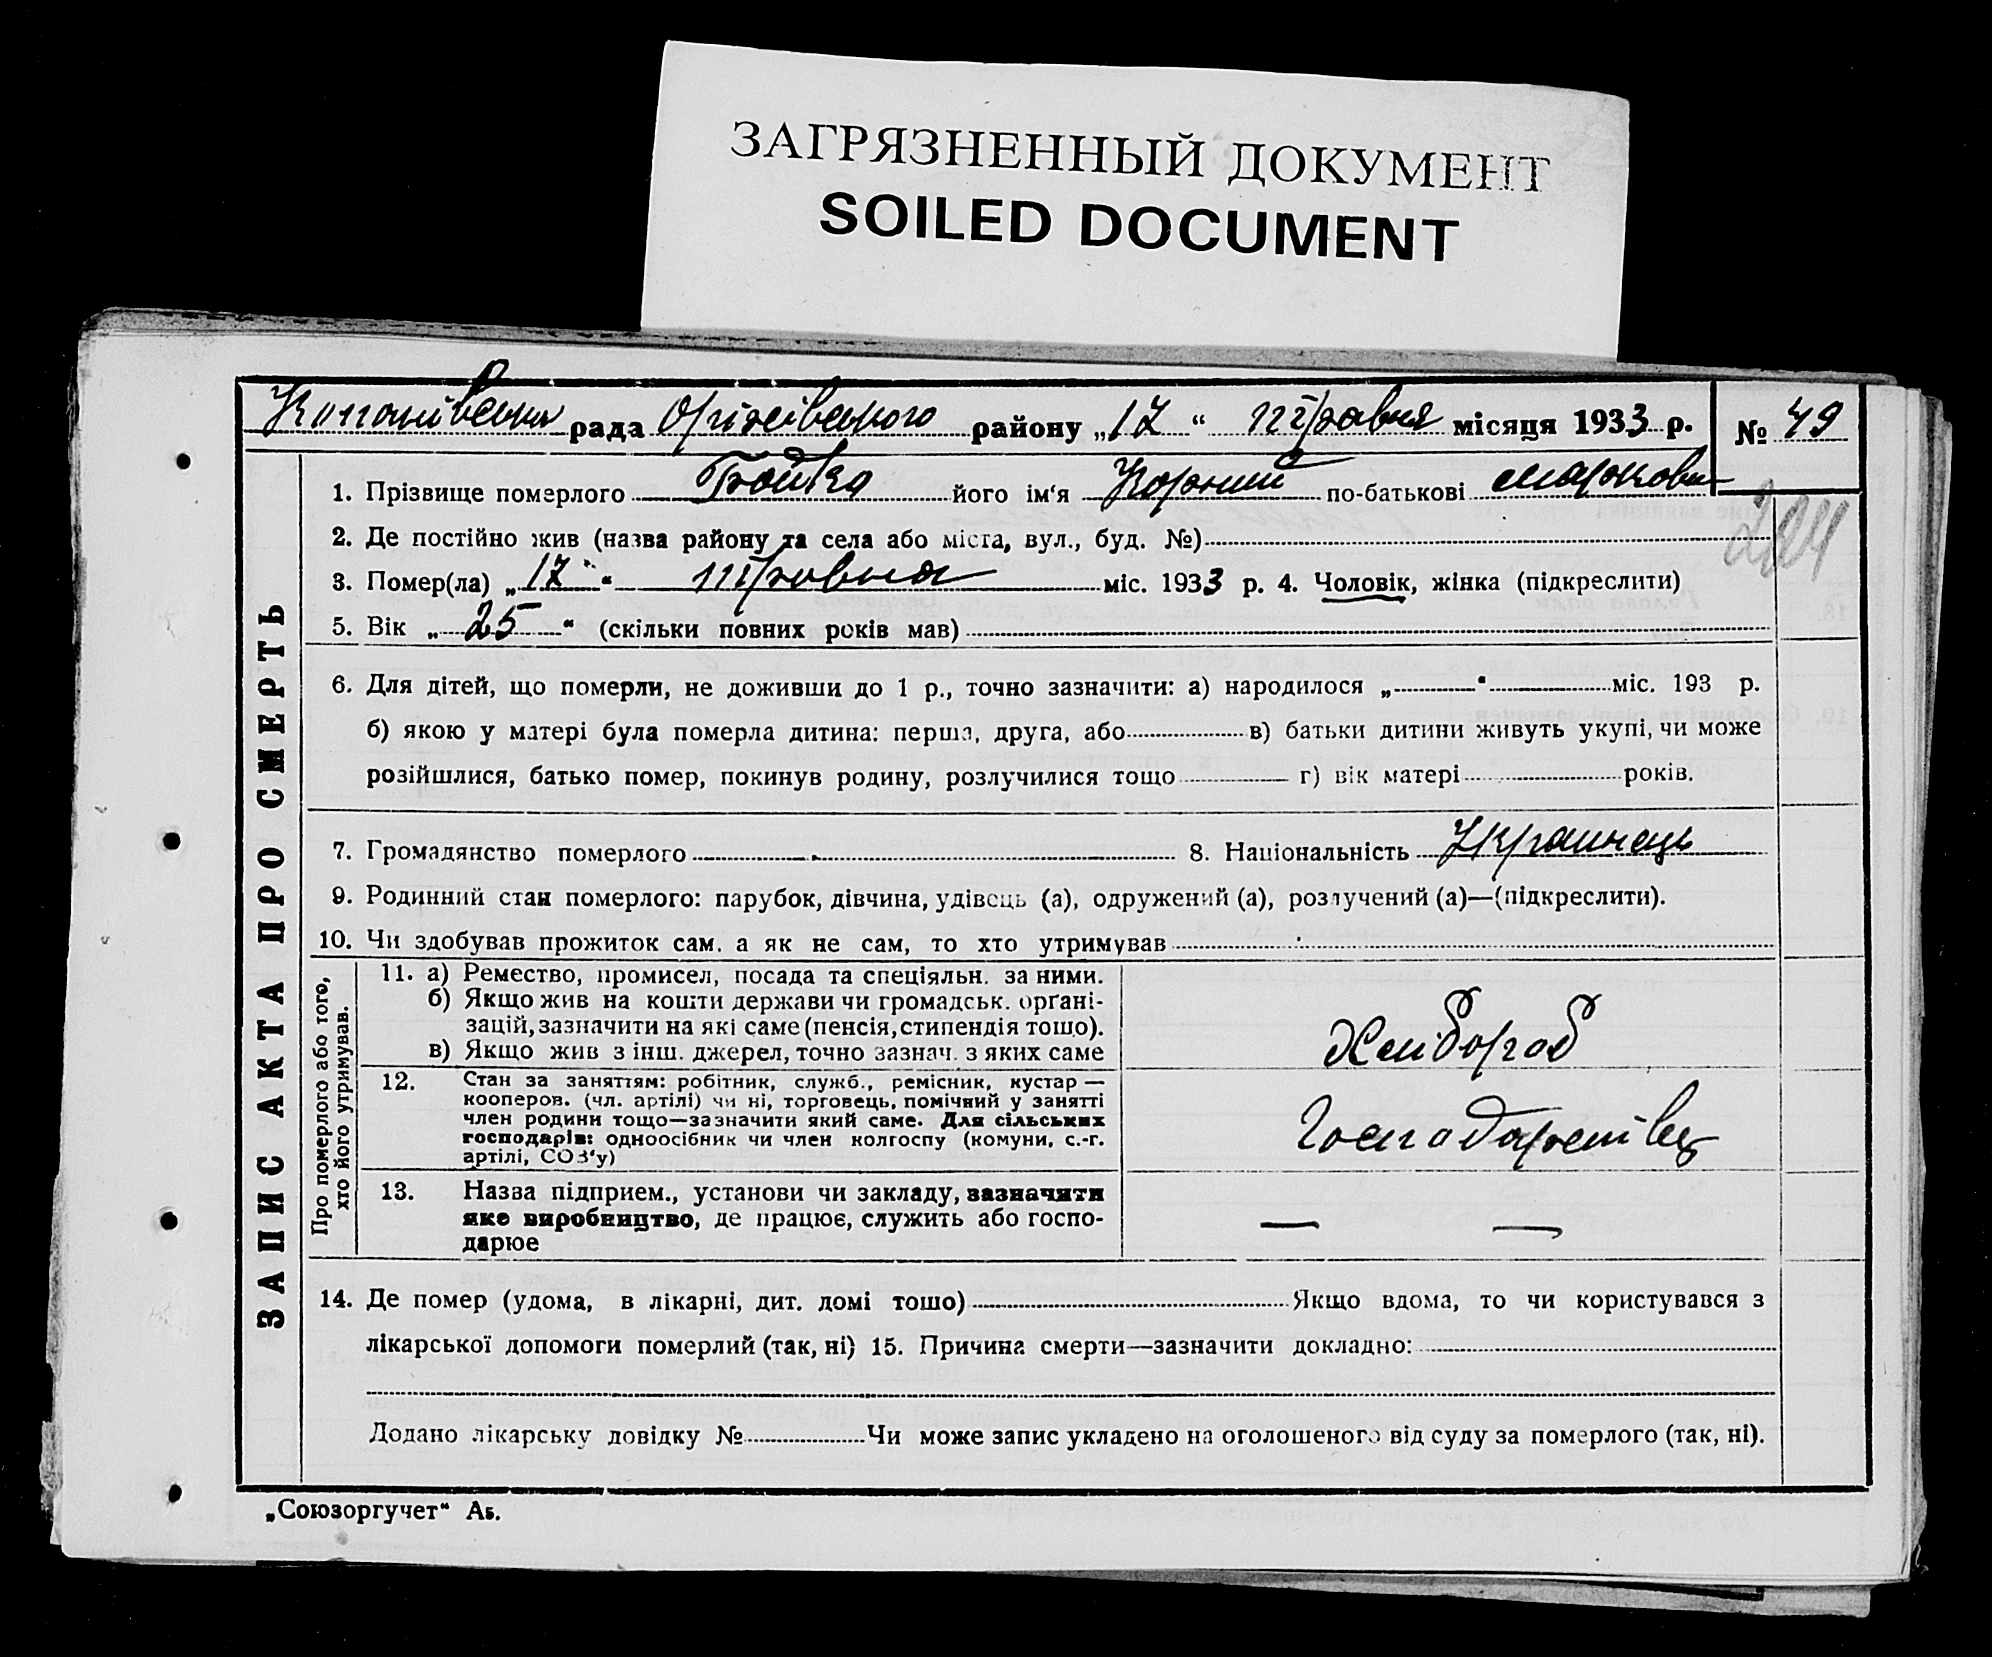 ЗАГРЯЗНЕННЫЙ ДОКУМЕНТ
SOILED DOCUMENT
рада Оржівського району „17“ травня місяця 1933 р. № 49
1. Прізвище померлого Бойко його ім‘я Корній по-батькові Маркович
2. Де постійно жив (назва району та села або міста, вул., буд. №)
3. Помер(ла) „17“ травня міс. 1933 р. 4. Чоловік, жінка (підкреслити)
5. Вік „25“ (скільки повних років мав)
6. Для дітей, що померли, не доживши до 1 р., точно зазначити: а) народилося „ “ міс. 193 р.
б) якою у матері була померла дитина: перша, друга, або в) батьки дитини живуть укупі, чи може
розійшлися, батько помер, покинув родину, розлучилися тощо г) вік матері років.
7. Громадянство померлого 8. Національність Українець
9. Родинний стан померлого: парубок, дівчина, удівець (а), одружений (а), розлучений (а)—(підкреслити).
10. Чи здобував прожиток сам, а як не сам, то хто утримував
Про померлого або того,
хто його утримував.
11. а) Ремество, промисел, посада та спеціяльн. за ними.
б) Якщо жив на кошти держави чи громадськ. органі-
зацій, зазначити на які саме (пенсія, стипендія тощо).
в) Якщо жив з інш. джерел, точно зазнач. з яких саме
Хлібороб
12. Стан за заняттям: робітник, служб., ремісник, кустар —
кооперов. (чл. артілі) чи ні, торговець, помічний у занятті
член родини тощо—зазначити який саме. Для сільських
господарів: одноосібник чи член колгоспу (комуни, с.-г.
артілі, СОЗ‘у)
13. Назва підприєм., установи чи закладу, зазначити
яке виробництво, де працює, служить або госпо-
дарює
— —
14. Де помер (удома, в лікарні, дит. домі тощо) Якщо вдома, то чи користувався з
лікарської допомоги померлий (так, ні) 15. Причина смерти—зазначити докладно:
Додано лікарську довідку № Чи може запис укладено на оголошеного від суду за померлого (так, ні).
ЗАПИС АКТА ПРО СМЕРТЬ
„Союзоргучет“ А5.